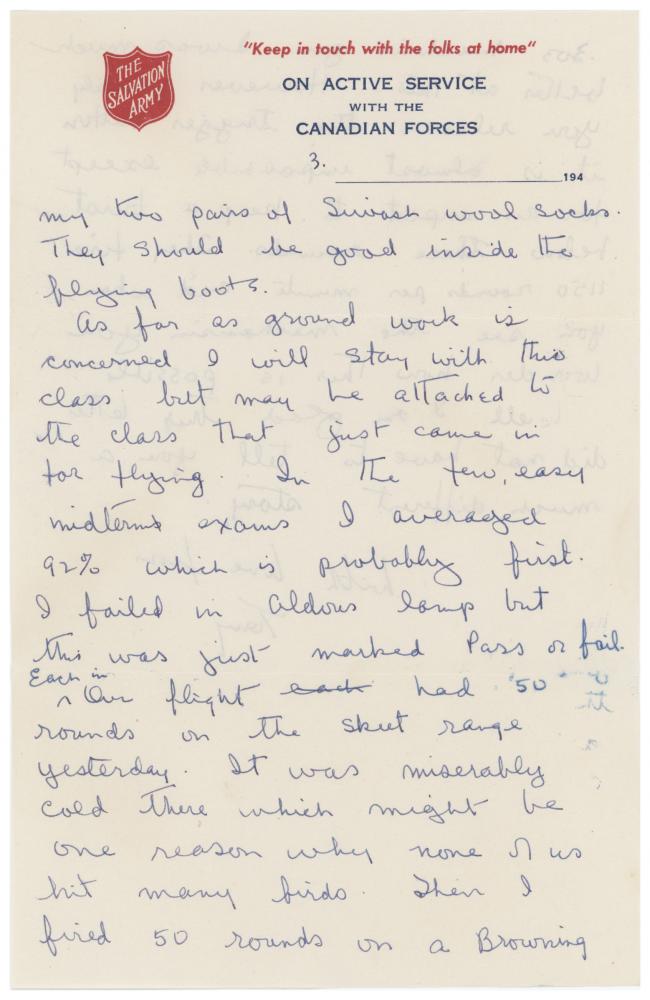 THE
SALVATION
ARMY
"Keep in touch with the folks at home"
ON ACTIVE SERVICE
WITH THE
CANADIAN FORCES
3.
194
my two pairs of Siwash wool socks.
They should be good inside the
flying boots.
As far as ground work is
concerned I will stay with this
class but may be attached to
the class that just came in
for flying. In the few, easy
midterms exams I averaged
92% which is probably first.
I failed in Aldous lamp but
this was just marked Pass or fail.
Each in
^ Our flight each had 50
rounds on the skeet range
yesterday. It was miserably
cold there which might be
one reason why none of us
hit many birds. Then I
fired 50 rounds on a Browning